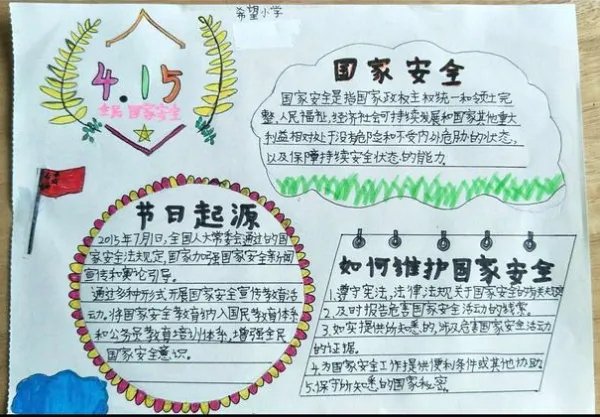 希望小学
4.15
全民国家安全
国家安全
国家安全是指国家政权主权统一和领土完
整、人民福祉,经济社会可持续发展和国家其他重大
利益相对处于没有危险和不受内外危胁的状态,
以及保障持续安全状态的能力
节日起源
2015年7月1日,全国人大常委会通过的国
家安全法规定,国家加强国家安全新闻
宣传和舆论引导。
通过多种形式开展国家安全宣传教育活
动.将国家安全教育纳入国民教育体系
和公务员教育培训体系,增强全民
国家安全意识。
如何维护国家安全
1.遵守宪法,法律法规关于国家安全的有关
2.及时报告危害国家安全活动的线索。
3.如实提供所知悉的,涉及危害国家安全活动
的证据。
4.为国家安全工作提供便利条件或其他协助
5.保守所知悉的国家秘密。